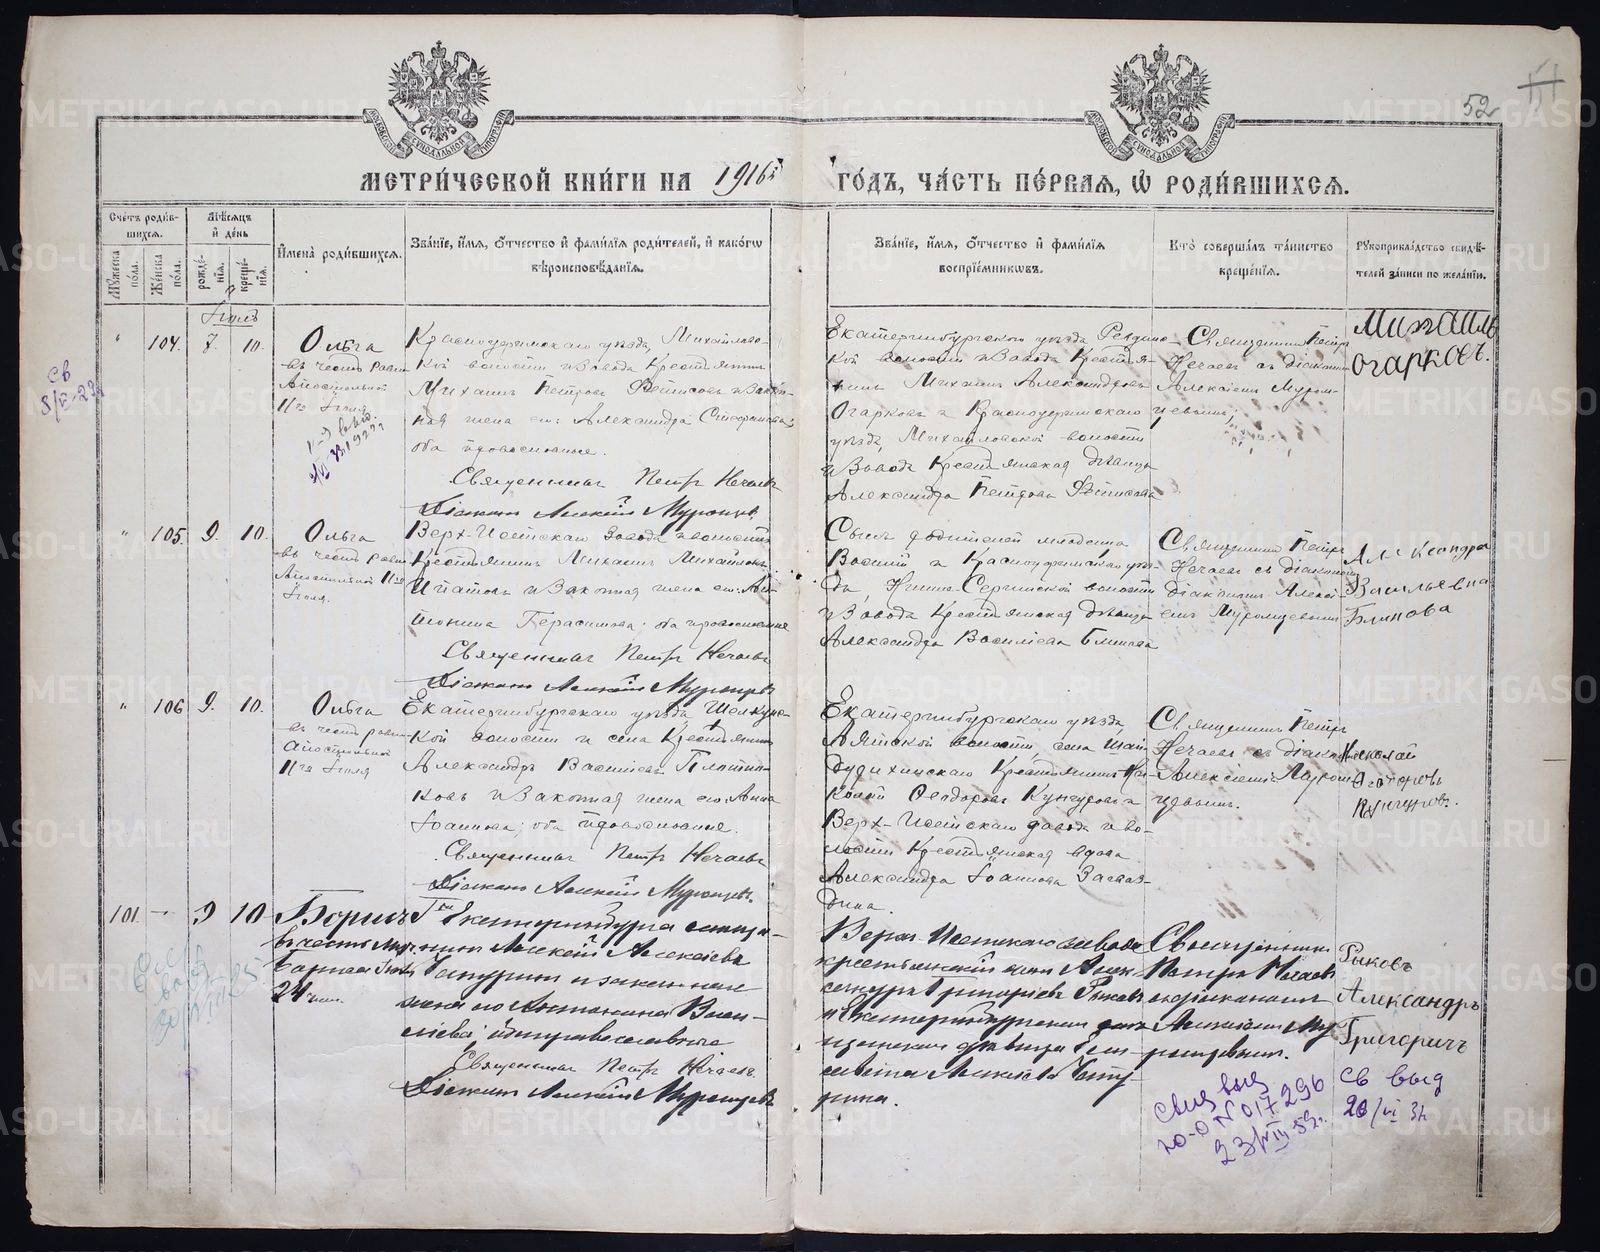 52
МЕТРИЧЕСКОЙ КНИГИ НА 1916й ГОДЪ, ЧАСТЬ ПЕРВАЯ, Ѿ РОДИВШИХСЯ.
Счетъ родив-
шихся.
Мужеска пола.
Женска пола.
Мѣсяцъ и день
рожденія.
крещенія.
Имена родившихся.
Званіе, имя, отчество и фамилія родителей, и какогѡ
вѣроисповѣданія.
Званіе, имя, отчество и фамилія
воспріемникѡвъ.
Кто совершалъ таинство
крещенія.
Рукоприкладство свидѣ-
телей записи по желанію.
Іюль
" 104. 7. 10.
Ольга
въ честь равно
Апостольной
11го Іюля.
Красноуфимскаго уѣзда, Михайловс-
кой волости и завода Крестьянинъ
Михаилъ Петровъ и закон-
ная жена его: Александра Стефанова
оба православные.
Священникъ Петръ Нечаевъ
Діаконъ Алексій Муромцевъ.
Екатеринбургскаго уѣзда Ревдинс-
кой волости и завода Крестья-
нинъ Михаилъ Александровъ
Огарковъ и Красноуфимскаго
уѣзда, Михайловской волости
и завода Крестьянская дѣвица
Александра Петрова
Священникъ Петръ
Нечаевъ съ діакономъ
Алексіемъ Муром-
цевымъ.
Михаилъ
Огарковъ.
" 105. 9. 10.
Ольга
въ честь равно
Апостольной 11го
Іюля.
Верх-Исетскаго завода и волости
Крестьянинъ Михаилъ Михайловъ
Ипатовъ и законная жена его: Ан-
Герасимова; оба православные
Священникъ Петръ Нечаевъ
Діаконъ Алексій Муромцевъ
Сынъ родителей младенца
Василій и Красноуфимскаго уѣз-
да, Нижне-Сергинской волости
и завода Крестьянская дѣвица
Александра Василіева Блинова
Священникъ Петръ
Нечаевъ съ діакономъ
діакономъ Алексі-
емъ Муромцевымъ
Александра
Васильевна
Блинова
" 106 9. 10.
Ольга
въ честь равно
апостольной
11го Іюля
Екатеринбургскаго уѣзда, Шелкунс-
кой волости и села Крестьянинъ
Александръ Василіевъ Плотни-
ковъ и законная жена его: Анна
Іоаннова; оба православные.
Священникъ Петръ Нечаевъ
Діаконъ Алексій Муромцевъ.
Екатеринбургскаго уѣзда,
Аятской волости, села Шай-
дурихинскаго Крестьянинъ Ни-
колай Ѳеодоровъ Кунгуровъ и
Верх-Исетскаго завода и во-
лости Крестьянская вдова
Александра Іоаннова
Священникъ Петръ
Нечаевъ съ діакономъ
Алексіемъ Муром-
цевымъ.
Николай
Федоровъ
Кунгуровъ.
101. — 9 10
Борисъ
въ честь муч.
24 числ.
Гор. Екатеринбурга мѣща-
нинъ Алексій Алексіевъ
Чапуринъ и законная
жена его Антонина Васи-
ліева; оба православные
Священникъ Петръ Нечаевъ
Діаконъ Алексій Муромцевъ
Верхъ-Исетскаго завода
крестьянскій сынъ Алек-
сандръ Григоріевъ Рыковъ
и Екатеринбургская
мѣщанская дѣвица Ели-
савета Алексіева Чапу-
рина.
Священникъ
Петръ Нечаевъ
съ діакономъ
Алексіемъ Му-
ромцевымъ.
Рыковъ
Александръ
Григоричъ
Св выд
20/VI 3
свид выд
Ю-О № 017296
23/VII-59г.